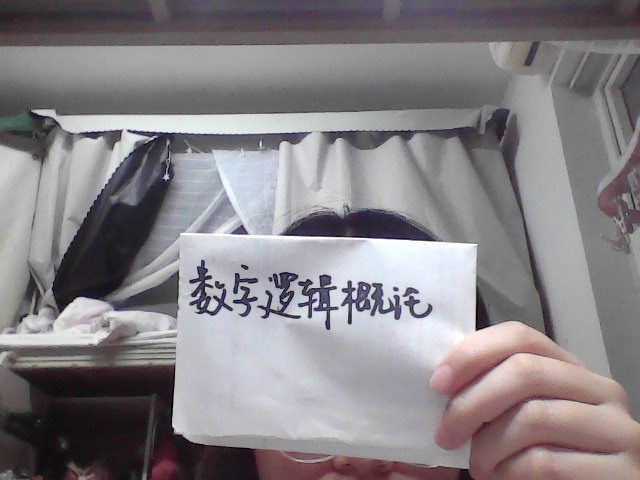 数字逻辑概论